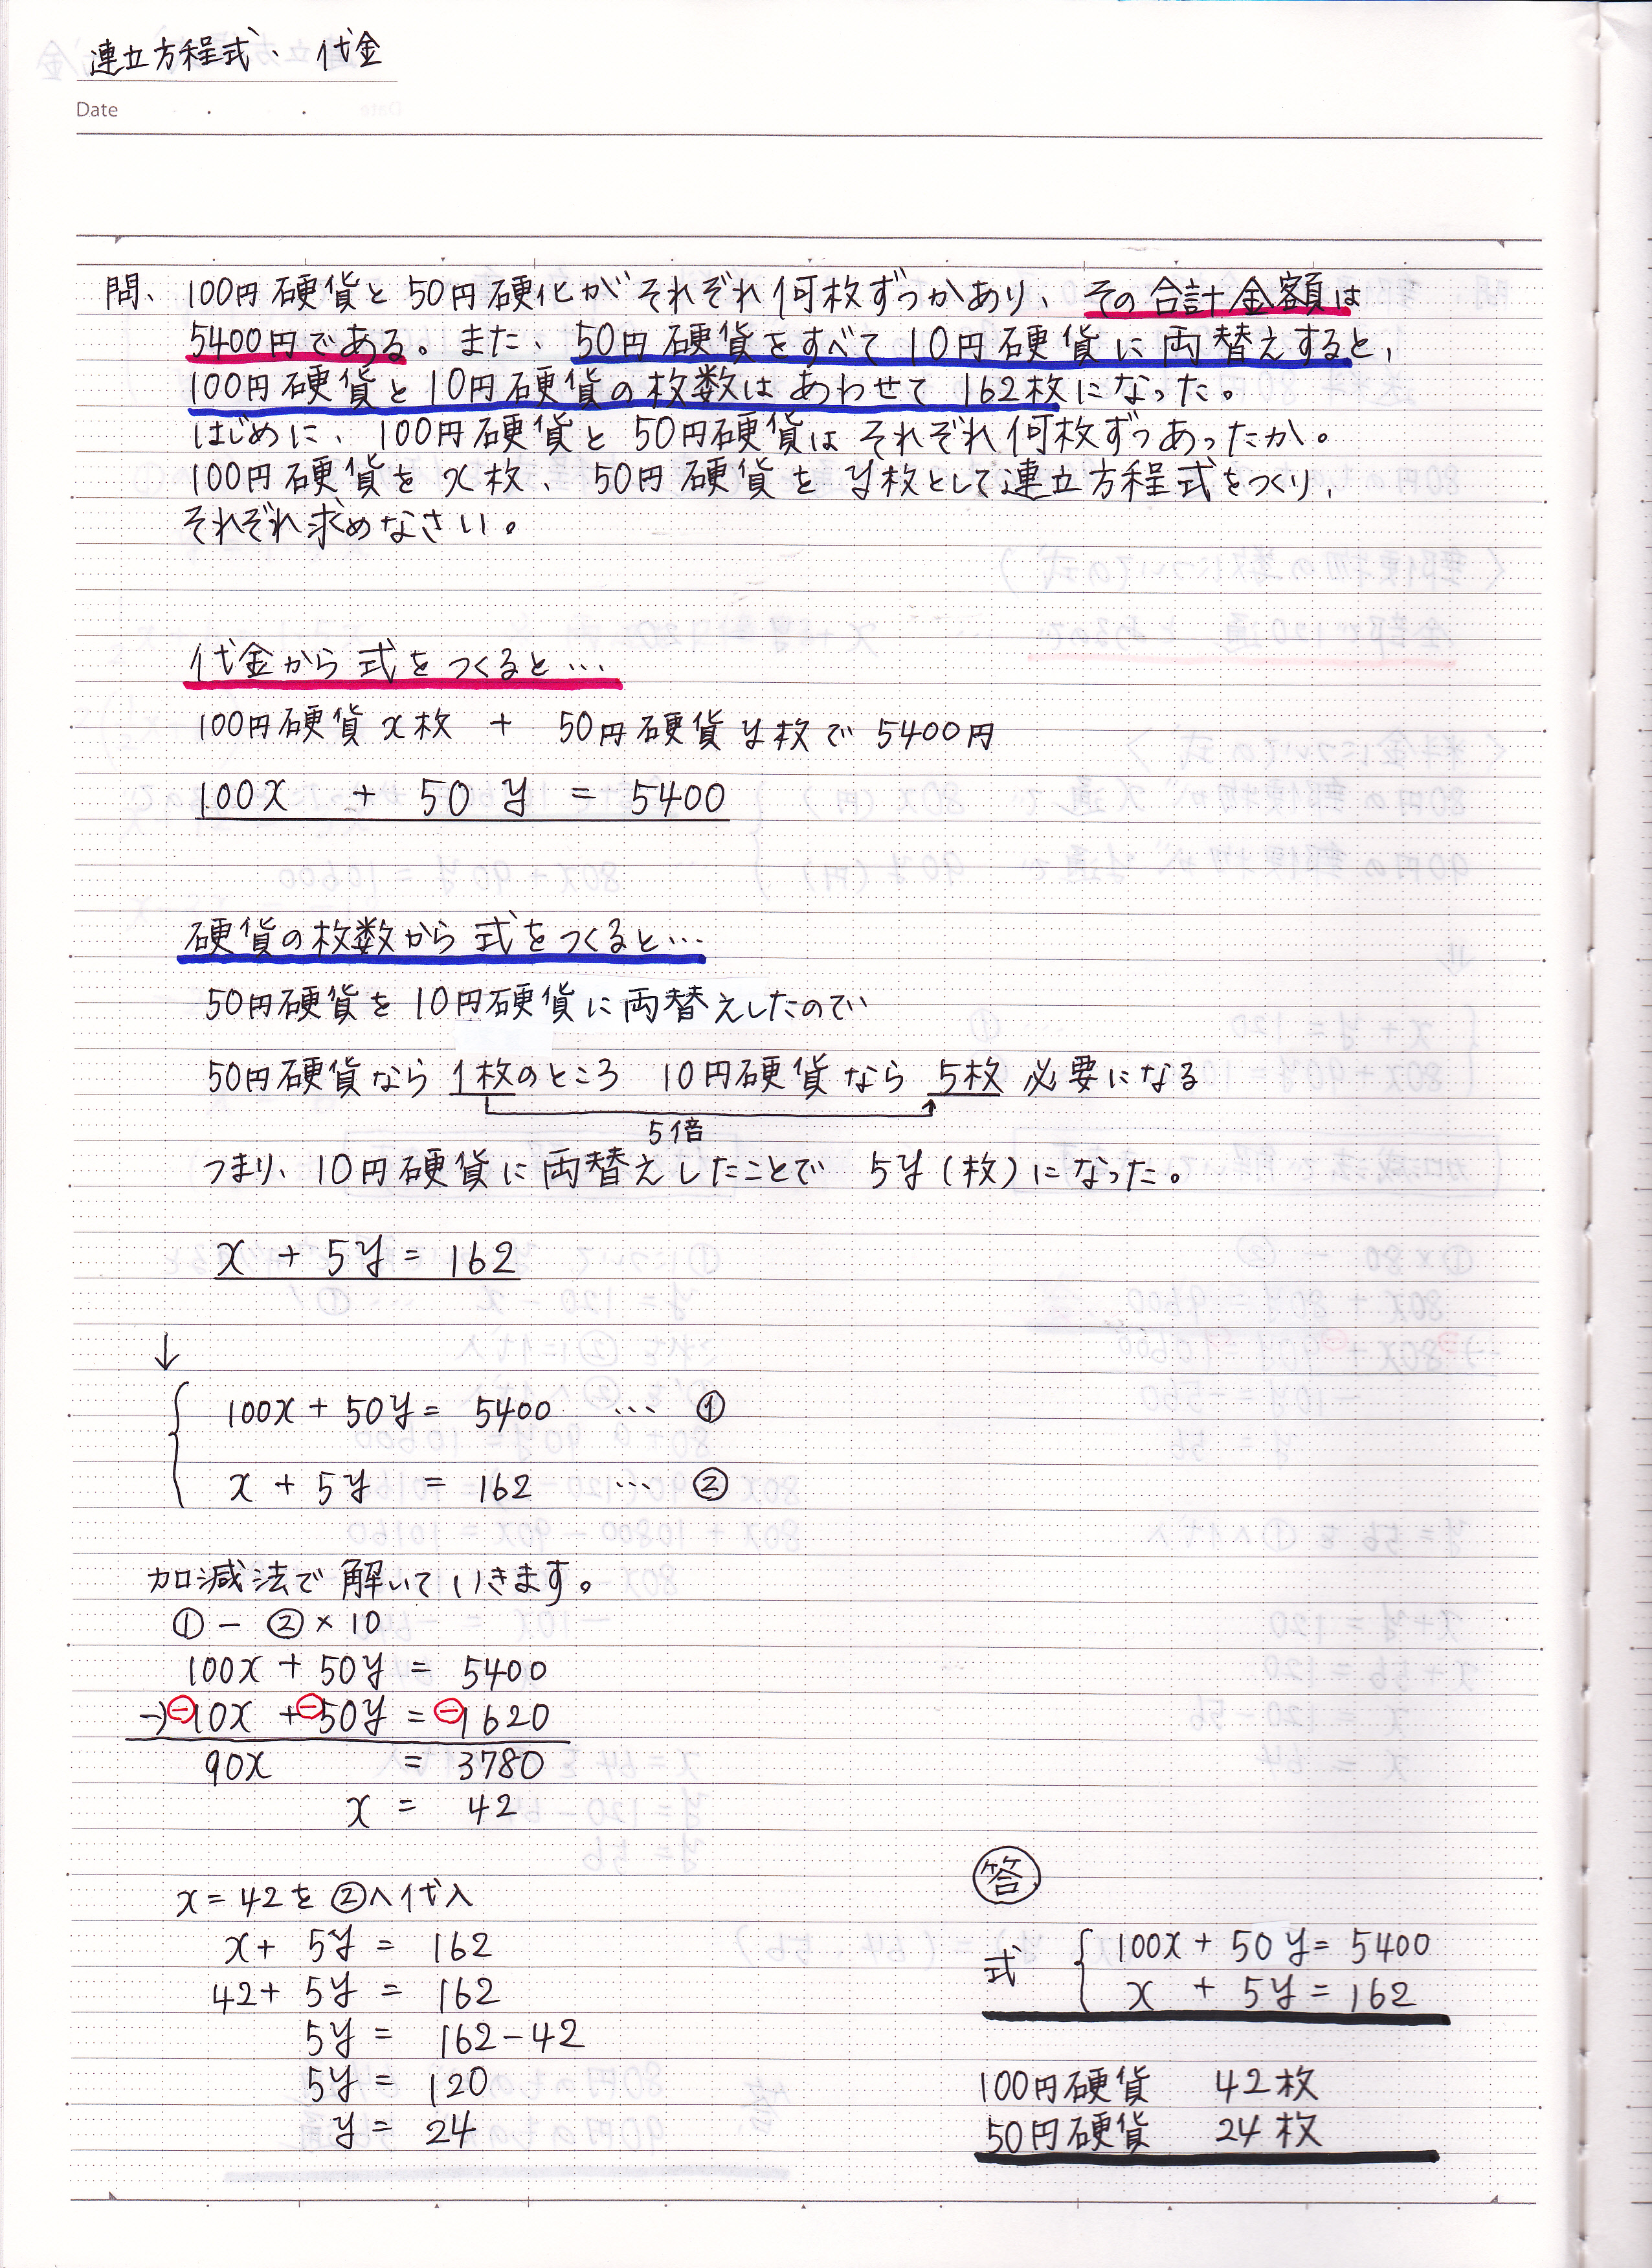 連立方程式、代金
Date
問、100円硬貨と50円硬化がそれぞれ何枚ずつかあり、その合計金額は
5400円である。また、50円硬貨をすべて10円硬貨に両替えすると、
100円硬貨と10円硬貨の枚数はあわせて162枚になった。
はじめに、100円硬貨と50円硬貨はそれぞれ何枚ずつあったか。
100円硬貨をx枚、50円硬貨をy枚として連立方程式をつくり、
それぞれ求めなさい。
代金から式をつくると…
100円硬貨x枚 + 50円硬貨y枚で5400円
100x + 50y = 5400
硬貨の枚数から式をつくると…
50円硬貨を10円硬貨に両替えしたので
50円硬貨なら1枚のところ 10円硬貨なら5枚必要になる
5倍
つまり、10円硬貨に両替えしたことで 5y(枚)になった。
x + 5y = 162
↓
100x + 50y = 5400 … ①
x + 5y = 162 … ②
加減法で解いていきます。
① − ② × 10
100x + 50y = 5400
−) ⊖10x + ⊖50y = ⊖1620
90x = 3780
x = 42
x = 42を②へ代入
x + 5y = 162
42 + 5y = 162
5y = 162 − 42
5y = 120
y = 24
答
式 { 100x + 50y = 5400
x + 5y = 162
100円硬貨 42枚
50円硬貨 24枚